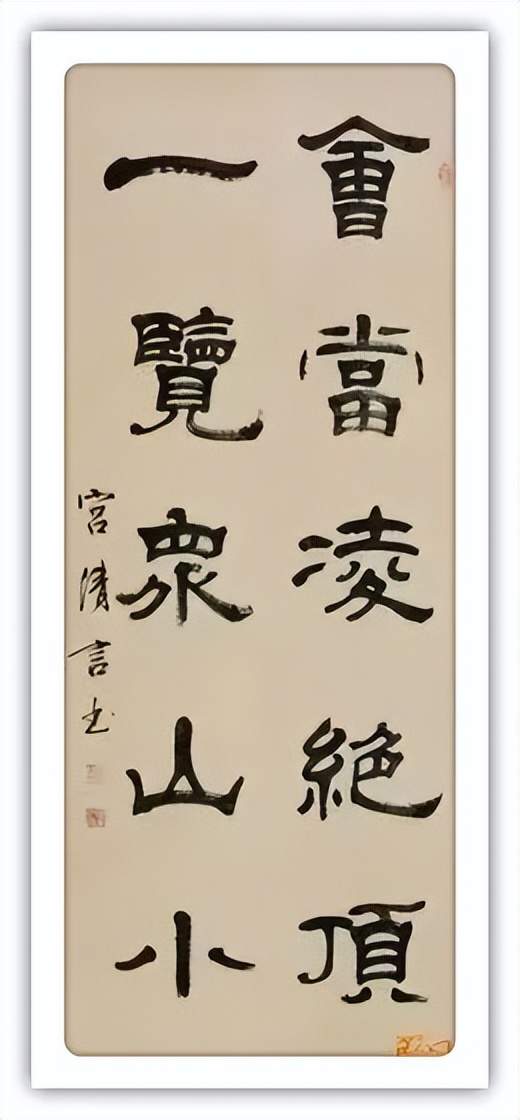 會當凌絕頂
一覽眾山小
宮清言书